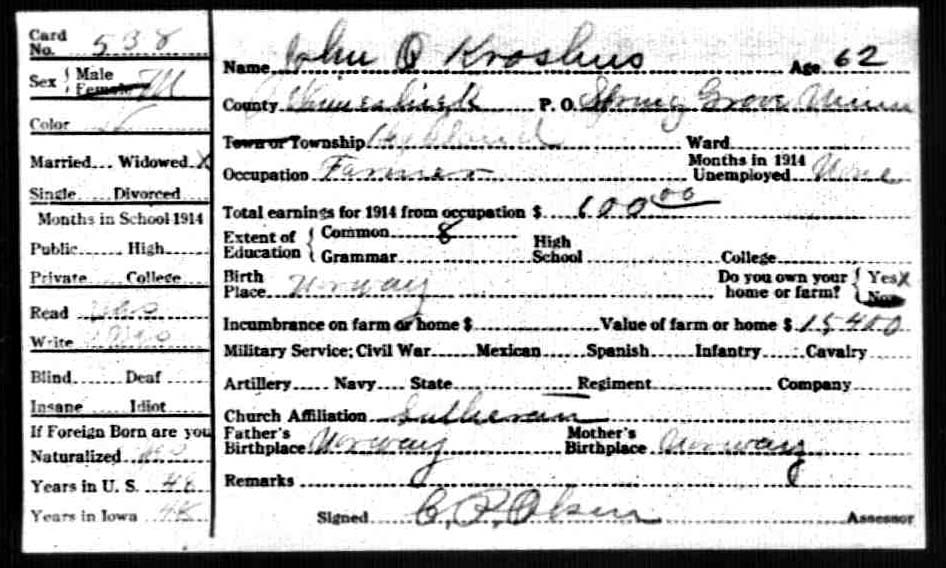 Card No. 538
Sex Male Female M
Color
Married... Widowed X
Single..... Divorced
Months in School 1914
Public....... High
Private..... College
Read yes
Write yes
Blind....... Deaf
Insane....... Idiot
If Foreign Born are you
Naturalized yes
Years in U. S. 48
Years in Iowa
Name John O Kroshus Age 62
County Winneshiek P. O. Spring Grove Minn
Town or Township Highland Ward
Occupation Farmer Months in 1914 Unemployed None
Total earnings for 1914 from occupation $ 600.00
Extent of Education Common 8 High School
Grammar College
Birth Place Norway Do you own your home or farm? Yes X No
Incumbrance on farm or home $ Value of farm or home $ 15400
Military Service: Civil War Mexican Spanish Infantry Cavalry
Artillery Navy State Regiment Company
Church Affiliation Lutheran
Father's Birthplace Norway Mother's Birthplace Norway
Remarks
Signed C. P. Olsen Assessor